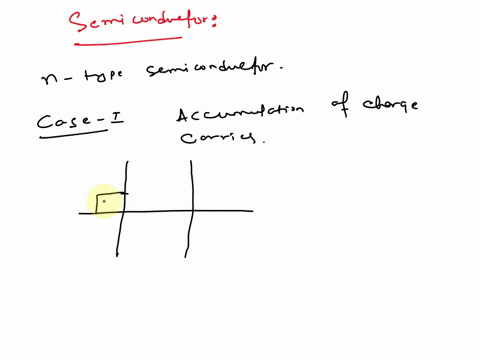 Semiconductor:
n-type semiconductor.
Case-I Accumulation of charge
carries.